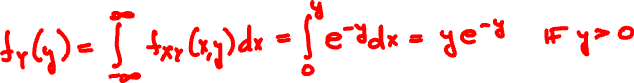 f_Y(y) = ∫_{-∞}^{∞} f_{XY}(x,y)dx = ∫_0^y e^{-y}dx = ye^{-y} IF y>0